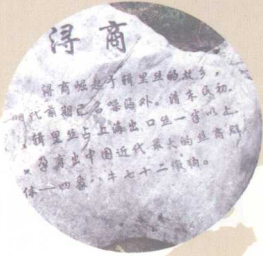 浔商
浔商崛起于辑里丝的故乡，
鸦片战前期已名噪海外。清末民初，
辑里丝占上海出口丝一半以上，
孕育出中国近代最大的丝商群
体——四象八牛七十二墩狗。